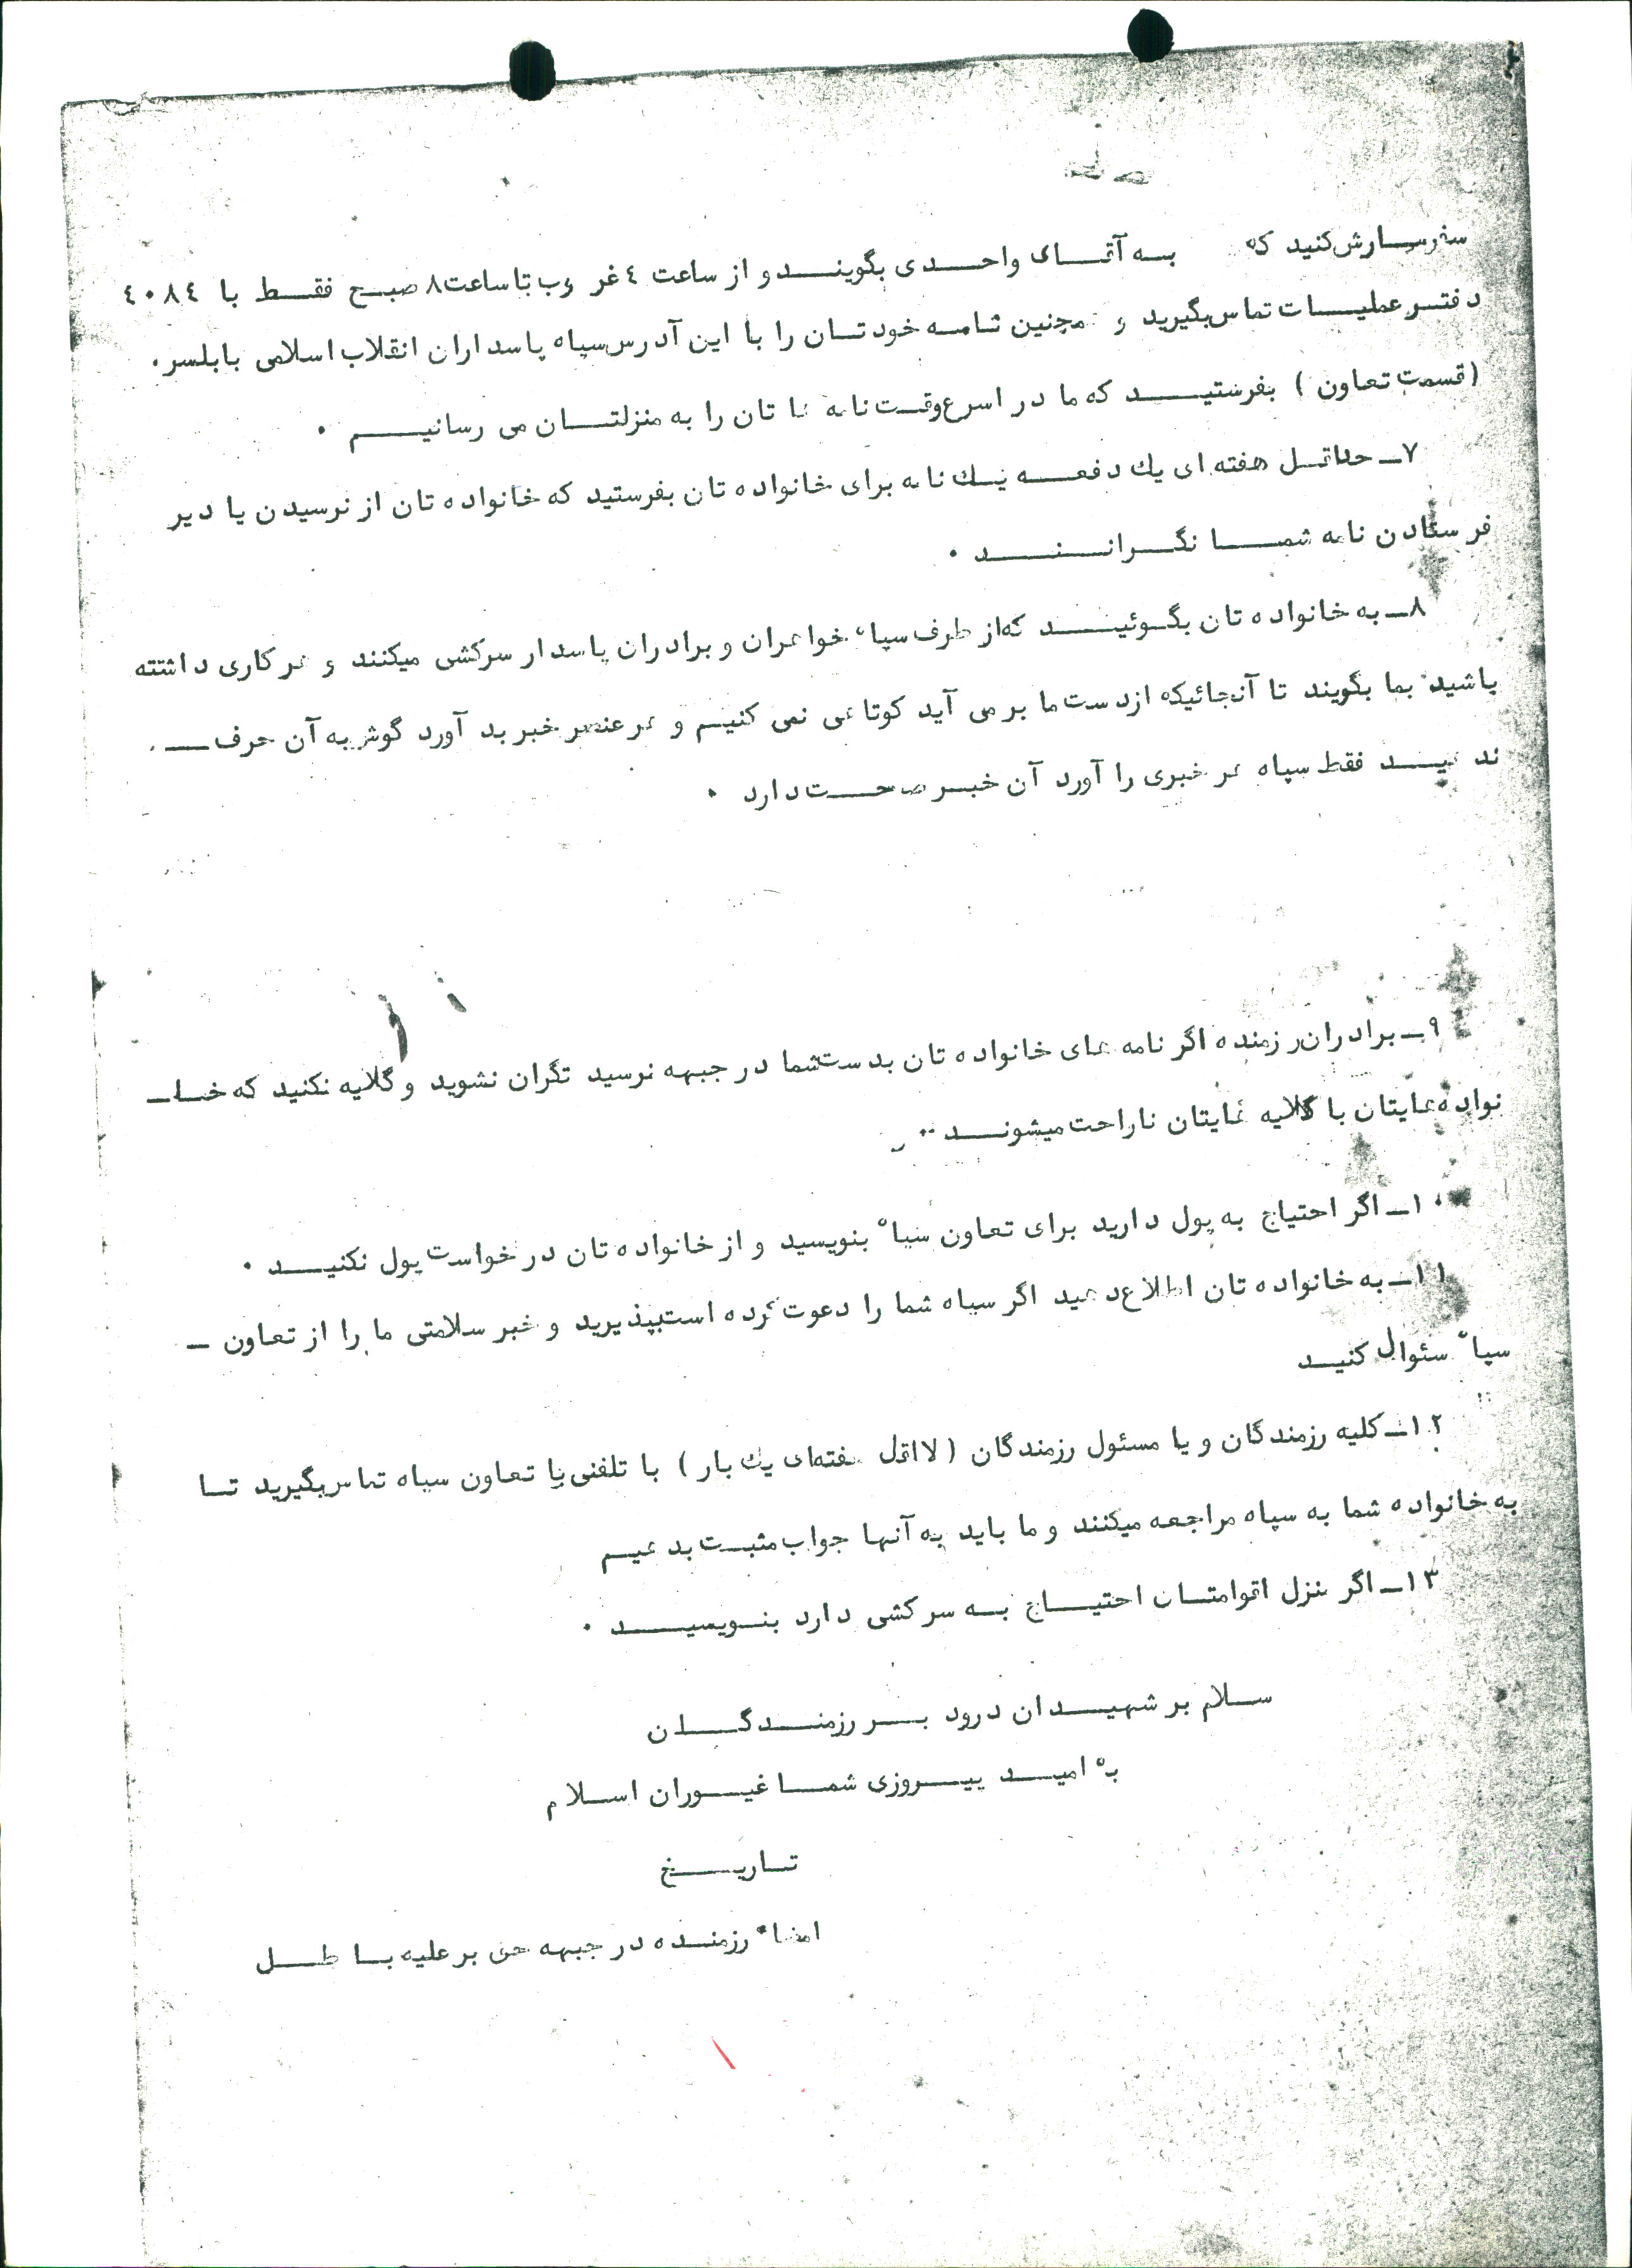 سفرسارش کنید که به آقای واحدی بگویند و از ساعت ٤ غر وب تا ساعت ٨ صبح فقط با ٤٠٨٤
دفتر عملیات تماس بگیرید و همچنین نامه خودتان را با این آدرس سپاه پاسداران انقلاب اسلامی بابلسر.
(قسمت تعاون ) بفرستید که ما در اسرع وقت نامه ها تان را به منزلتان می رسانیم .
٧ـ حداقل هفته ای یك دفعه یك نامه برای خانواده تان بفرستید که خانواده تان از نرسیدن یا دیر
فرستادن نامه شما نگرانند .
٨ـ به خانواده تان بگوئیند که از طرف سپاه خواهران و برادران پاسدار سرکشی میکنند و هر کاری داشتته
باشید بما بگویند تا آنجائیکه ازدست ما بر می آید کوتاهی نمی کنیم و هر عنصر خبر بد آورد گوش به آن حرف ـ
ند هید فقط سپاه هر خبری را آورد آن خبر صحت دارد .
٩ـ برادران رزمنده اگر نامه های خانواده تان بدست شما در جبهه نرسید نگران نشوید و گلایه نکنید که خا ـ
نواده هایتان با گلایه هایتان ناراحت میشوند ..
١٠ـ اگر احتیاج به پول دارید برای تعاون سپاه بنویسید و از خانواده تان درخواست پول نکنید .
١١ـ به خانواده تان اطلاع دهید اگر سپاه شما را دعوت کرده است بپذیرید و خبر سلامتی ما را از تعاون ـ
سپاه سئوال کنید
١٢ـ کلیه رزمندگان و یا مسئول رزمندگان ( لااقل هفته ای یك بار ) با تلفنی با تعاون سپاه تماس بگیرید تا
به خانواده شما به سپاه مراجعه میکنند و ما باید به آنها جواب مثبت بدهیم
١٣ـ اگر منزل اقوامتان احتیاج به سرکشی دارد بنویسید .
سلام بر شهیدان درود بر رزمندگان
به امید پیروزی شما غیوران اسلام
تاریخ
امضاء رزمنده در جبهه حق بر علیه باطل